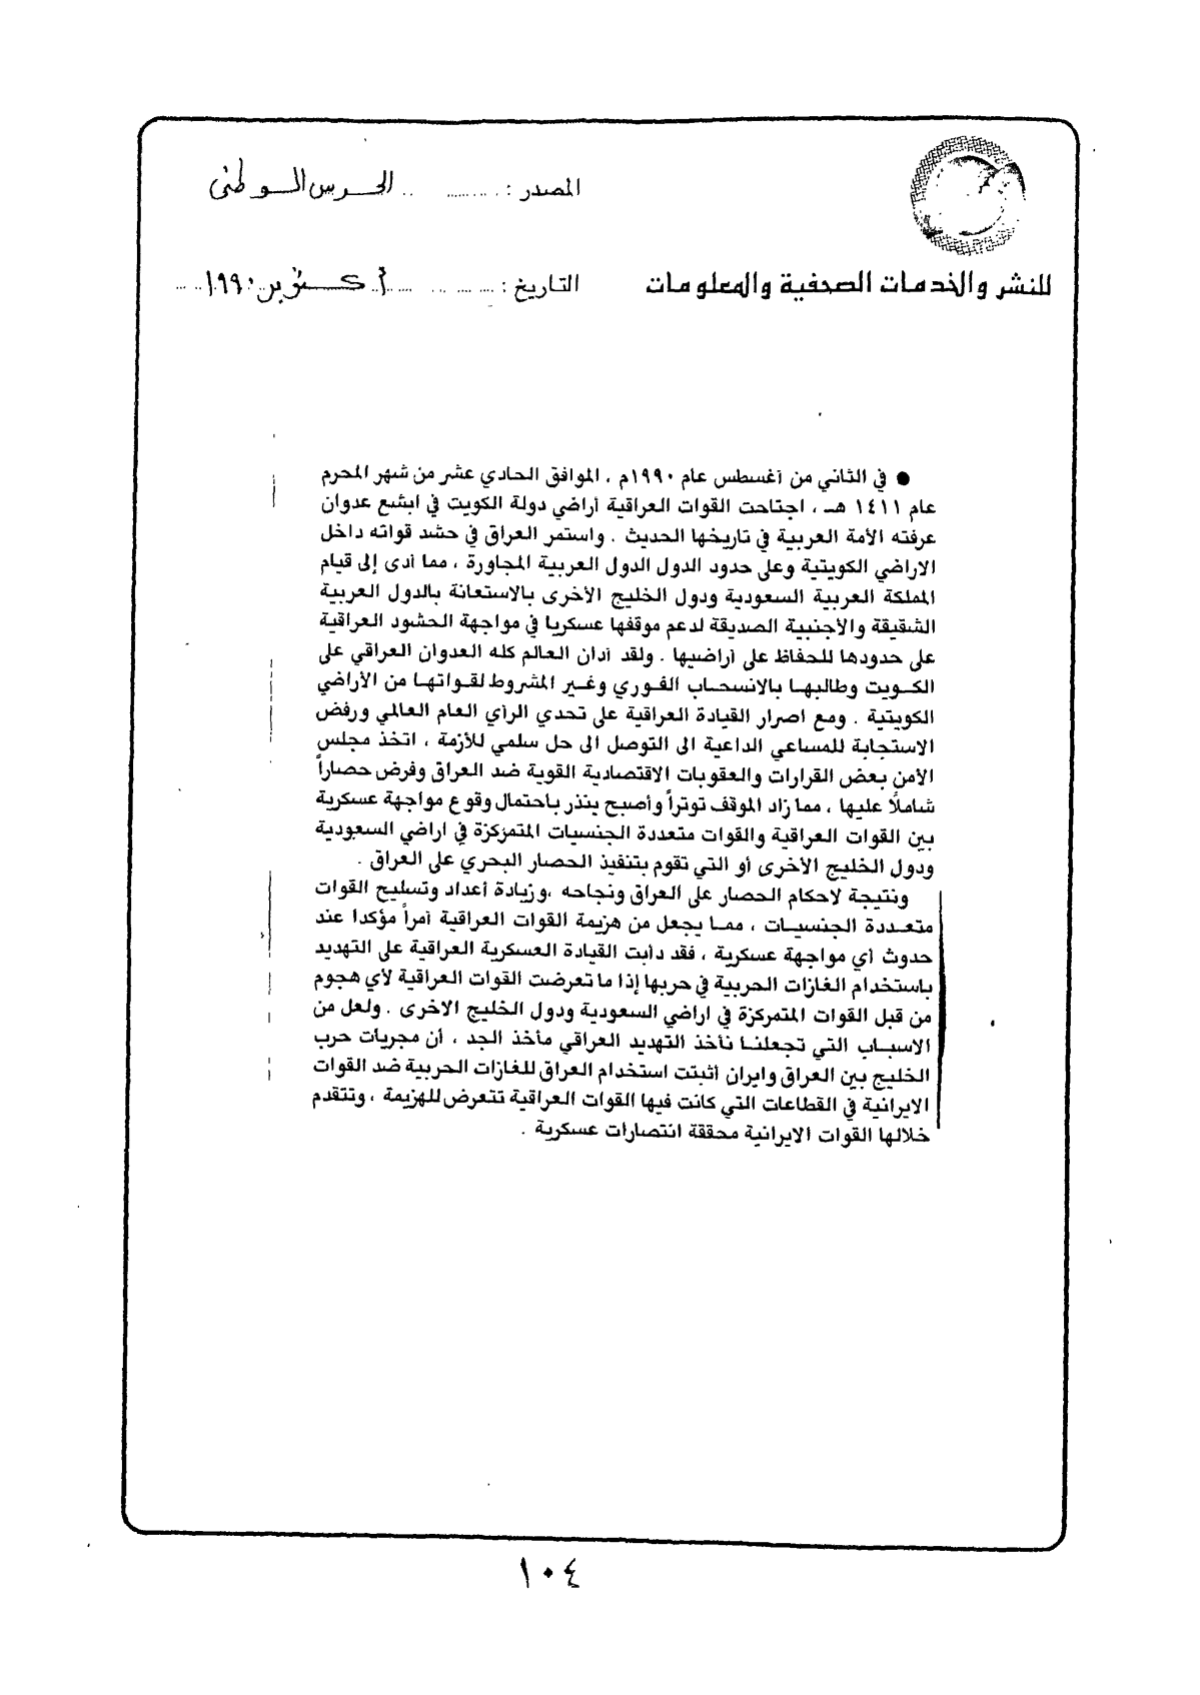 المصدر : ........ .. الحرس الوطنى
للنشر والخدمات الصحفية والمعلومات
التاريخ : ........ أكتوبر ١٩٩٠
● في الثاني من أغسطس عام ١٩٩٠م ، الموافق الحادي عشر من شهر المحرم
عام ١٤١١ هـ ، اجتاحت القوات العراقية أراضي دولة الكويت في ابشع عدوان
عرفته الأمة العربية في تاريخها الحديث . واستمر العراق في حشد قواته داخل
الاراضي الكويتية وعلى حدود الدول الدول العربية المجاورة ، مما أدى إلى قيام
المملكة العربية السعودية ودول الخليج الأخرى بالاستعانة بالدول العربية
الشقيقة والأجنبية الصديقة لدعم موقفها عسكريا في مواجهة الحشود العراقية
على حدودها للحفاظ على أراضيها . ولقد أدان العالم كله العدوان العراقي على
الكويت وطالبها بالانسحاب الفوري وغير المشروط لقواتها من الأراضي
الكويتية . ومع اصرار القيادة العراقية على تحدي الرأي العام العالمي ورفض
الاستجابة للمساعي الداعية الى التوصل الى حل سلمي للأزمة ، اتخذ مجلس
الأمن بعض القرارات والعقوبات الاقتصادية القوية ضد العراق وفرض حصاراً
شاملاً عليها ، مما زاد الموقف توتراً وأصبح ينذر باحتمال وقوع مواجهة عسكرية
بين القوات العراقية والقوات متعددة الجنسيات المتمركزة في اراضي السعودية
ودول الخليج الأخرى أو التي تقوم بتنفيذ الحصار البحري على العراق .
ونتيجة لاحكام الحصار على العراق ونجاحه ،وزيادة أعداد وتسليح القوات
متعددة الجنسيات ، مما يجعل من هزيمة القوات العراقية أمراً مؤكدا عند
حدوث أي مواجهة عسكرية ، فقد دأبت القيادة العسكرية العراقية على التهديد
باستخدام الغازات الحربية في حربها إذا ما تعرضت القوات العراقية لأي هجوم
من قبل القوات المتمركزة في اراضي السعودية ودول الخليج الاخرى . ولعل من
الاسباب التي تجعلنا نأخذ التهديد العراقي مأخذ الجد ، أن مجريات حرب
الخليج بين العراق وايران أثبتت استخدام العراق للغازات الحربية ضد القوات
الايرانية في القطاعات التي كانت فيها القوات العراقية تتعرض للهزيمة ، وتتقدم
خلالها القوات الايرانية محققة انتصارات عسكرية .
١٠٤